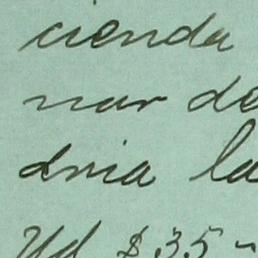 cienda
nar de
dria la
Ud $35-